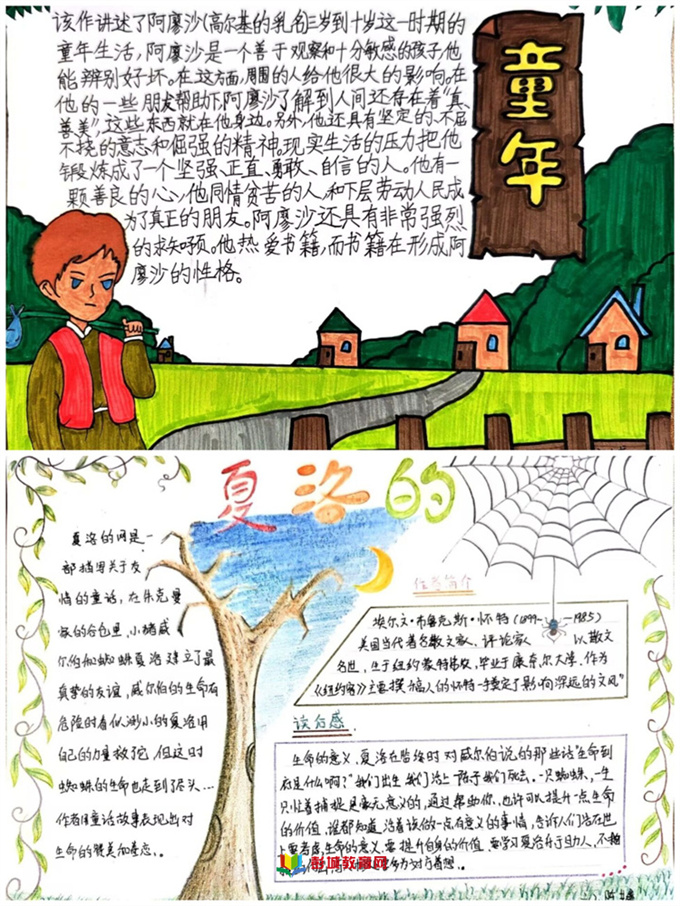 该作讲述了阿廖沙(高尔基的乳名)三岁到十岁这一时期的
童年生活,阿廖沙是一个善于观察和十分敏感的孩子,他
能辨别好坏。在这方面,周围的人给他很大的影响。在
他的一些朋友帮助下,阿廖沙了解到人间还存在着“真、
善美”,这些东西就在他身边。另外,他还具有坚定的、不屈
不挠的意志和倔强的精神,现实生活的压力把他
锻炼成了一个坚强、正直、勇敢、自信的人。他有一
颗善良的心,他同情贫苦的人,和下层劳动人民成
为了真正的朋友。阿廖沙还具有非常强烈
的求知欲。他热爱书籍,而书籍在形成阿
廖沙的性格。
童年
夏洛的
夏洛的网是一
部描写关于友
情的童话,在朱克曼
家的谷仓里,小猪威
尔伯和蜘蛛夏洛建立了最
真挚的友谊,威尔伯的生命有
危险时看似渺小的夏洛用
自己的力量救了它,但这时
蜘蛛的生命也走到了尽头…
作者用童话故事表现出对
生命的赞美和眷恋。
作者简介
埃尔文·布鲁克斯·怀特(1899——1985)
美国当代著名散文家、评论家 以散文
名世,生于纽约蒙特弗农,毕业于康奈尔大学,作为
《纽约客》主要撰稿人的怀特一手奠定了影响深远的文风”
读后感
生命的意义,夏洛在临终时对威尔伯说的那些话“生命到
底是什么啊?”我们出生,我们活上一阵子我们死去,一只蜘蛛,一生
只忙着捕捉是毫无意义的,通过帮助你,也许可以提升一点生命
的价值,谁都知道活着该做一点有意义的事情,告诉人们活在世
上要考虑生命的意义,要提升自身的价值,要学习夏洛乐于助人,不
彭城教育网